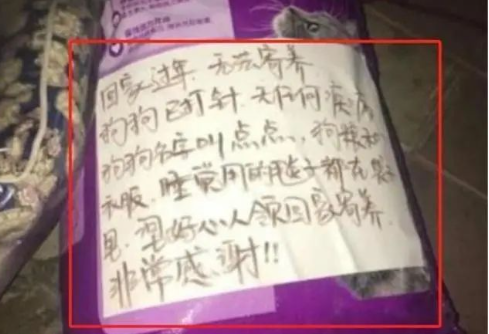 回家过年、无法寄养
狗狗已打针、无任何疾病
狗狗名字叫点点、狗粮和
衣服、睡觉用的毯子都在袋子
里、望好心人领回家寄养、
非常感谢!!